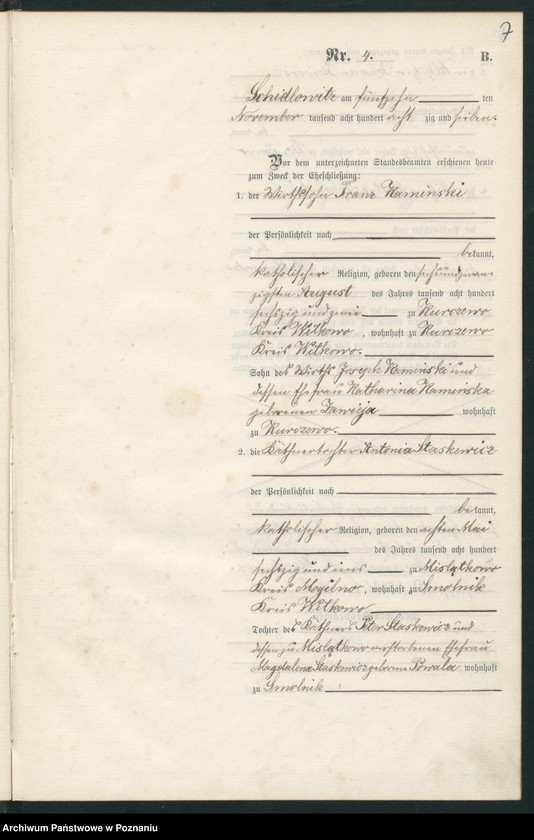 7
Nr. 4. B.
Schidlowitz am fünfzehn ten
November tausend acht hundert acht zig und sieben.
Vor dem unterzeichneten Standesbeamten erschienen heute
zum Zweck der Eheschließung:
1. der Wirthssohn Franz Kaminski
der Persönlichkeit nach
bekannt,
katholischer Religion, geboren den sechsundzwan-
zigsten August des Jahres tausend acht hundert
sechszig und zwei zu Kurczewo
Kreis Witkowo, wohnhaft zu Kurczewo
Kreis Witkowo.
Sohn des Wirths Joseph Kaminski und
dessen Ehefrau Katharina Kaminska
geborenen wohnhaft
zu Kurczewo.
2. die Käthnertochter Antonia Staskewicz
der Persönlichkeit nach
bekannt,
katholischer Religion, geboren den achten Mai
des Jahres tausend acht hundert
sechszig und eins zu Mislątkowo
Kreis Mogilno, wohnhaft zu Smolnik
Kreis Witkowo
Tochter des Käthners Peter Staskewicz und
dessen zu Mislątkowo verstorbenen Ehefrau
Magdalena Staskewicz geborene Powala wohnhaft
zu Smolnik
Archiwum Państwowe w Poznaniu